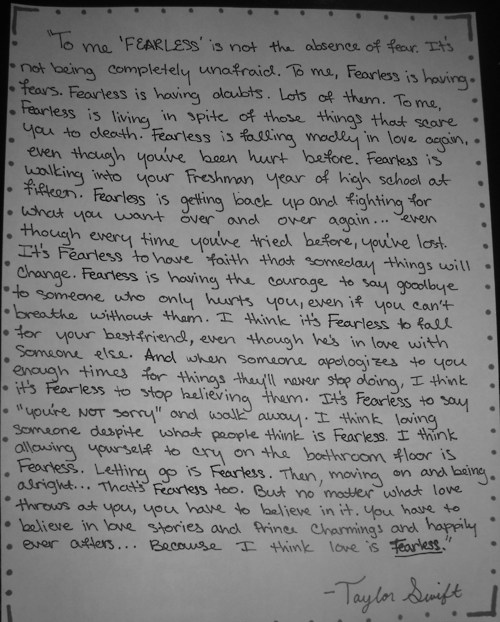 "To me 'FEARLESS' is not the absence of fear. It's
not being completely unafraid. To me, Fearless is having
fears. Fearless is having doubts. Lots of them. To me,
Fearless is living in spite of those things that scare
you to death. Fearless is falling madly in love again,
even though you've been hurt before. Fearless is
walking into your Freshman year of high school at
fifteen. Fearless is getting back up and fighting for
what you want over and over again... even
though every time you've tried before, you've lost.
It's Fearless to have faith that someday things will
change. Fearless is having the courage to say goodbye
to someone who only hurts you, even if you can't
breathe without them. I think it's Fearless to fall
for your bestfriend, even though he's in love with
someone else. And when someone apologizes to you
enough times for things they'll never stop doing, I think
it's Fearless to stop believing them. It's Fearless to say
"you're NOT sorry" and walk away. I think loving
someone despite what people think is Fearless. I think
allowing yourself to cry on the bathroom floor is
Fearless. Letting go is Fearless. Then, moving on and being
alright... That's Fearless too. But no matter what love
throws at you, you have to believe in it. You have to
believe in love stories and Prince Charmings and happily
ever afters... Because I think love is Fearless."
-Taylor Swift